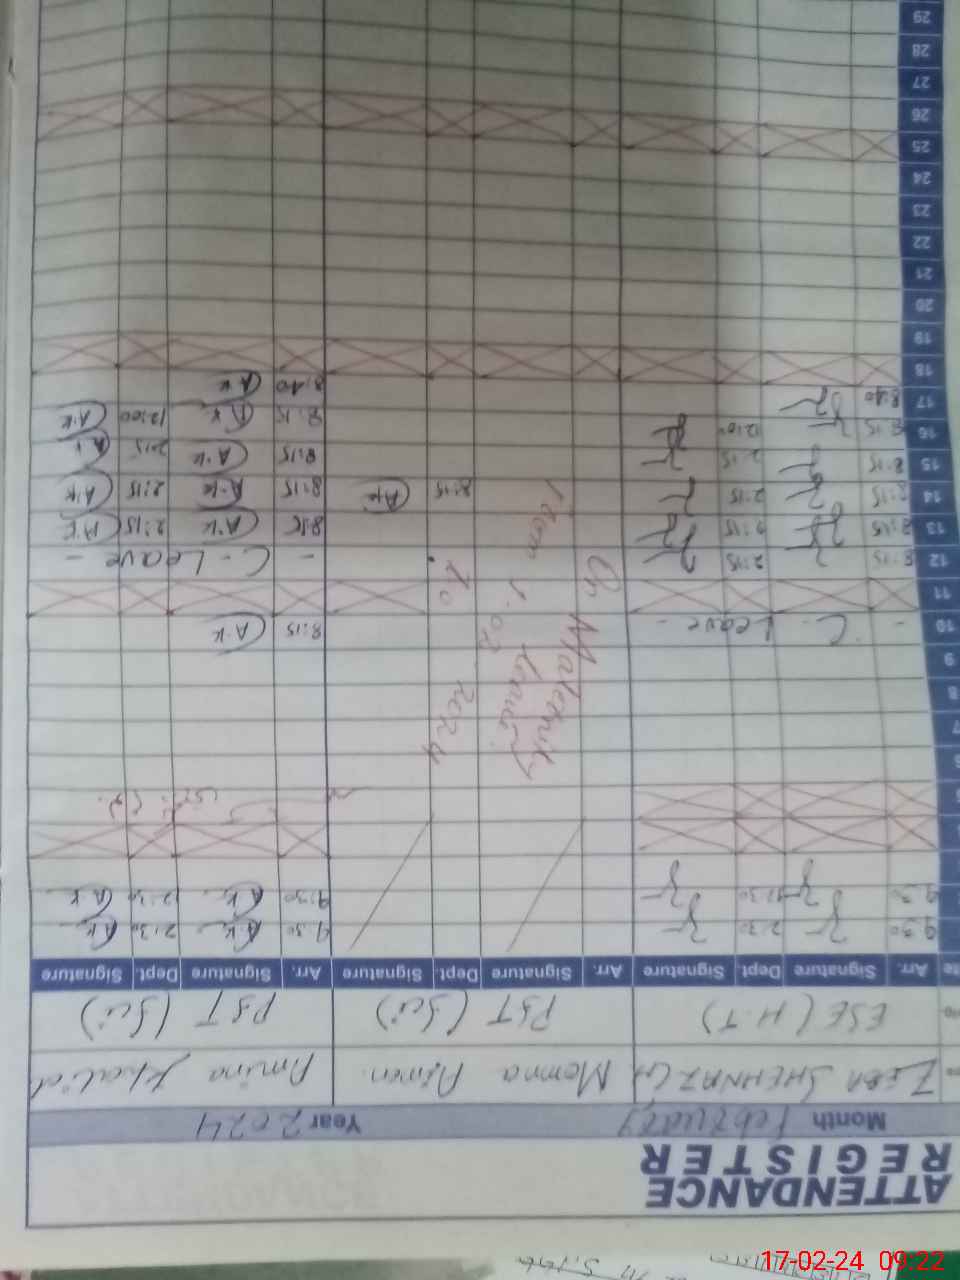 ATTENDANCE
REGISTER
Month February Year 2024
ZEBA SHEHNAZ Momna Aimen. Amina Khalid
ESE (H.T) PST (Sci) PST (Sci)
Arr. Signature Dept. Signature Arr. Signature Dept. Signature Arr. Signature Dept. Signature
9:30 2:30 9:30 A.K 2:30 A.K
9:30 12:30 9:30 A.K 12:30 A.K
On Maternity
Leave
from 1-02
To 2024
10 - C. Leave - 8:15 A.K
11
12 8:15 2:15 - C-Leave -
13 8:15 2:15 8:15 A.K 2:15 A.K
14 8:15 2:15 8:15 A.K 8:15 A.K 2:15 A.K
15 8:15 2:15 8:15 A.K 2:15 A.K
16 8:15 12:00 8:15 A.K 12:00 A.K
17 8:40 8:40 A.K
18
19
20
21
22
23
24
25
26
27
28
29
17-02-24 09:22